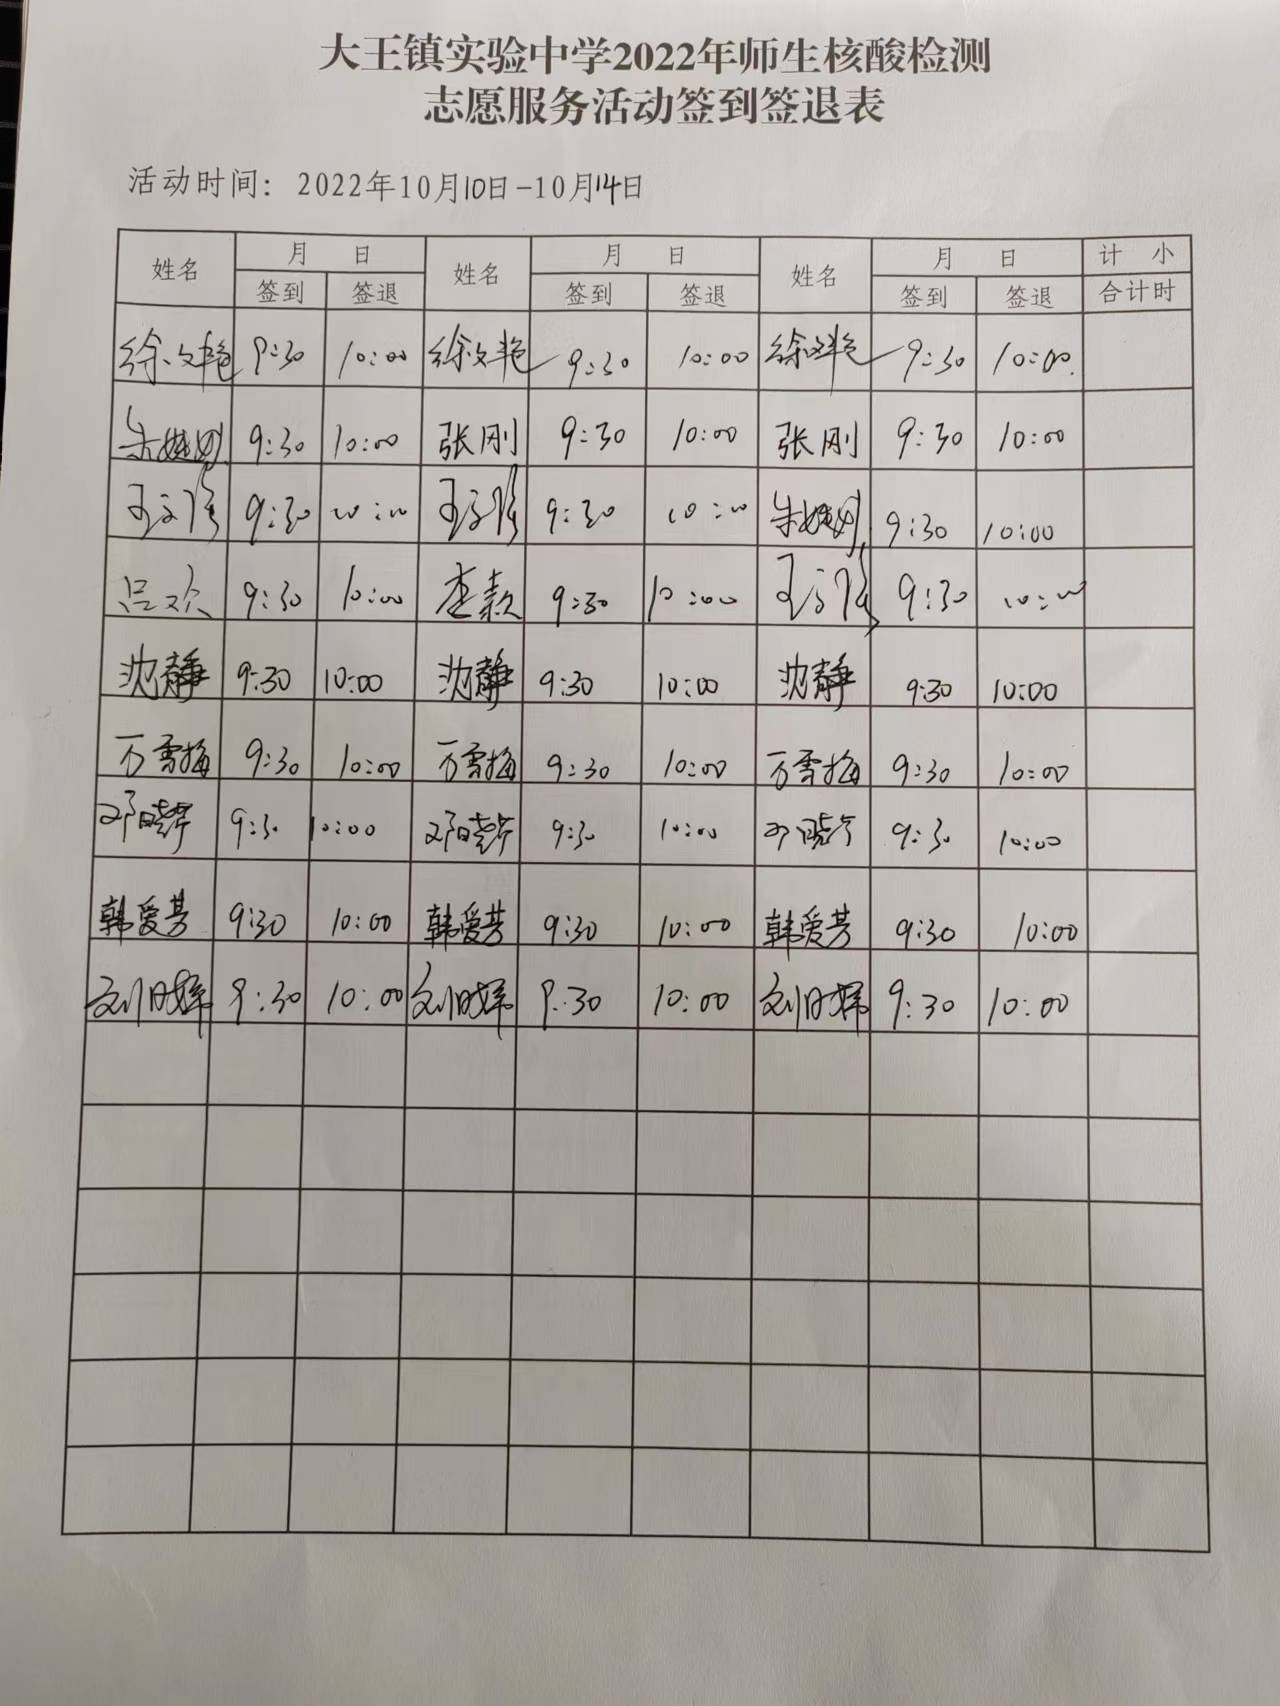 大王镇实验中学2022年师生核酸检测
志愿服务活动签到签退表
活动时间：2022年10月10日-10月14日
姓名 月 日 姓名 月 日 姓名 月 日 计 小
签到 签退 签到 签退 签到 签退 合计时
徐文艳 9:30 10:00 徐文艳 9:30 10:00 徐文艳 9:30 10:00.
9:30 10:00 张刚 9:30 10:00 张刚 9:30 10:00
9:30 10:00 9:30 10:00 9:30 10:00
吕欢 9:30 10:00 李款 9:30 10:00 9:30 10:00
沈静 9:30 10:00 沈静 9:30 10:00 沈静 9:30 10:00
万雪梅 9:30 10:00 万雪梅 9:30 10:00 万雪梅 9:30 10:00
邓晓芹 9:30 10:00 邓晓芹 9:30 10:00 邓晓芹 9:30 10:00
韩爱芳 9:30 10:00 韩爱芳 9:30 10:00 韩爱芳 9:30 10:00
刘日辉 9:30 10:00 刘日辉 9:30 10:00 刘日辉 9:30 10:00